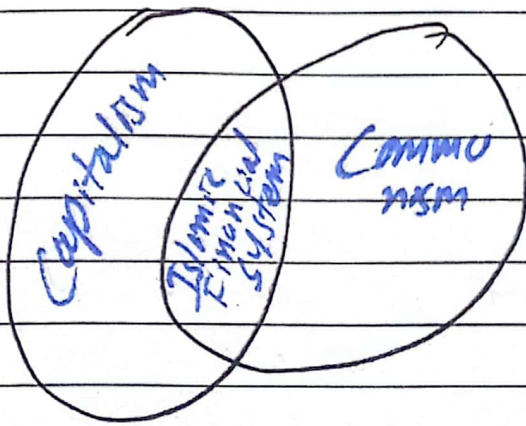 Capitalism
Islamic
Financial
System
Commu
nism